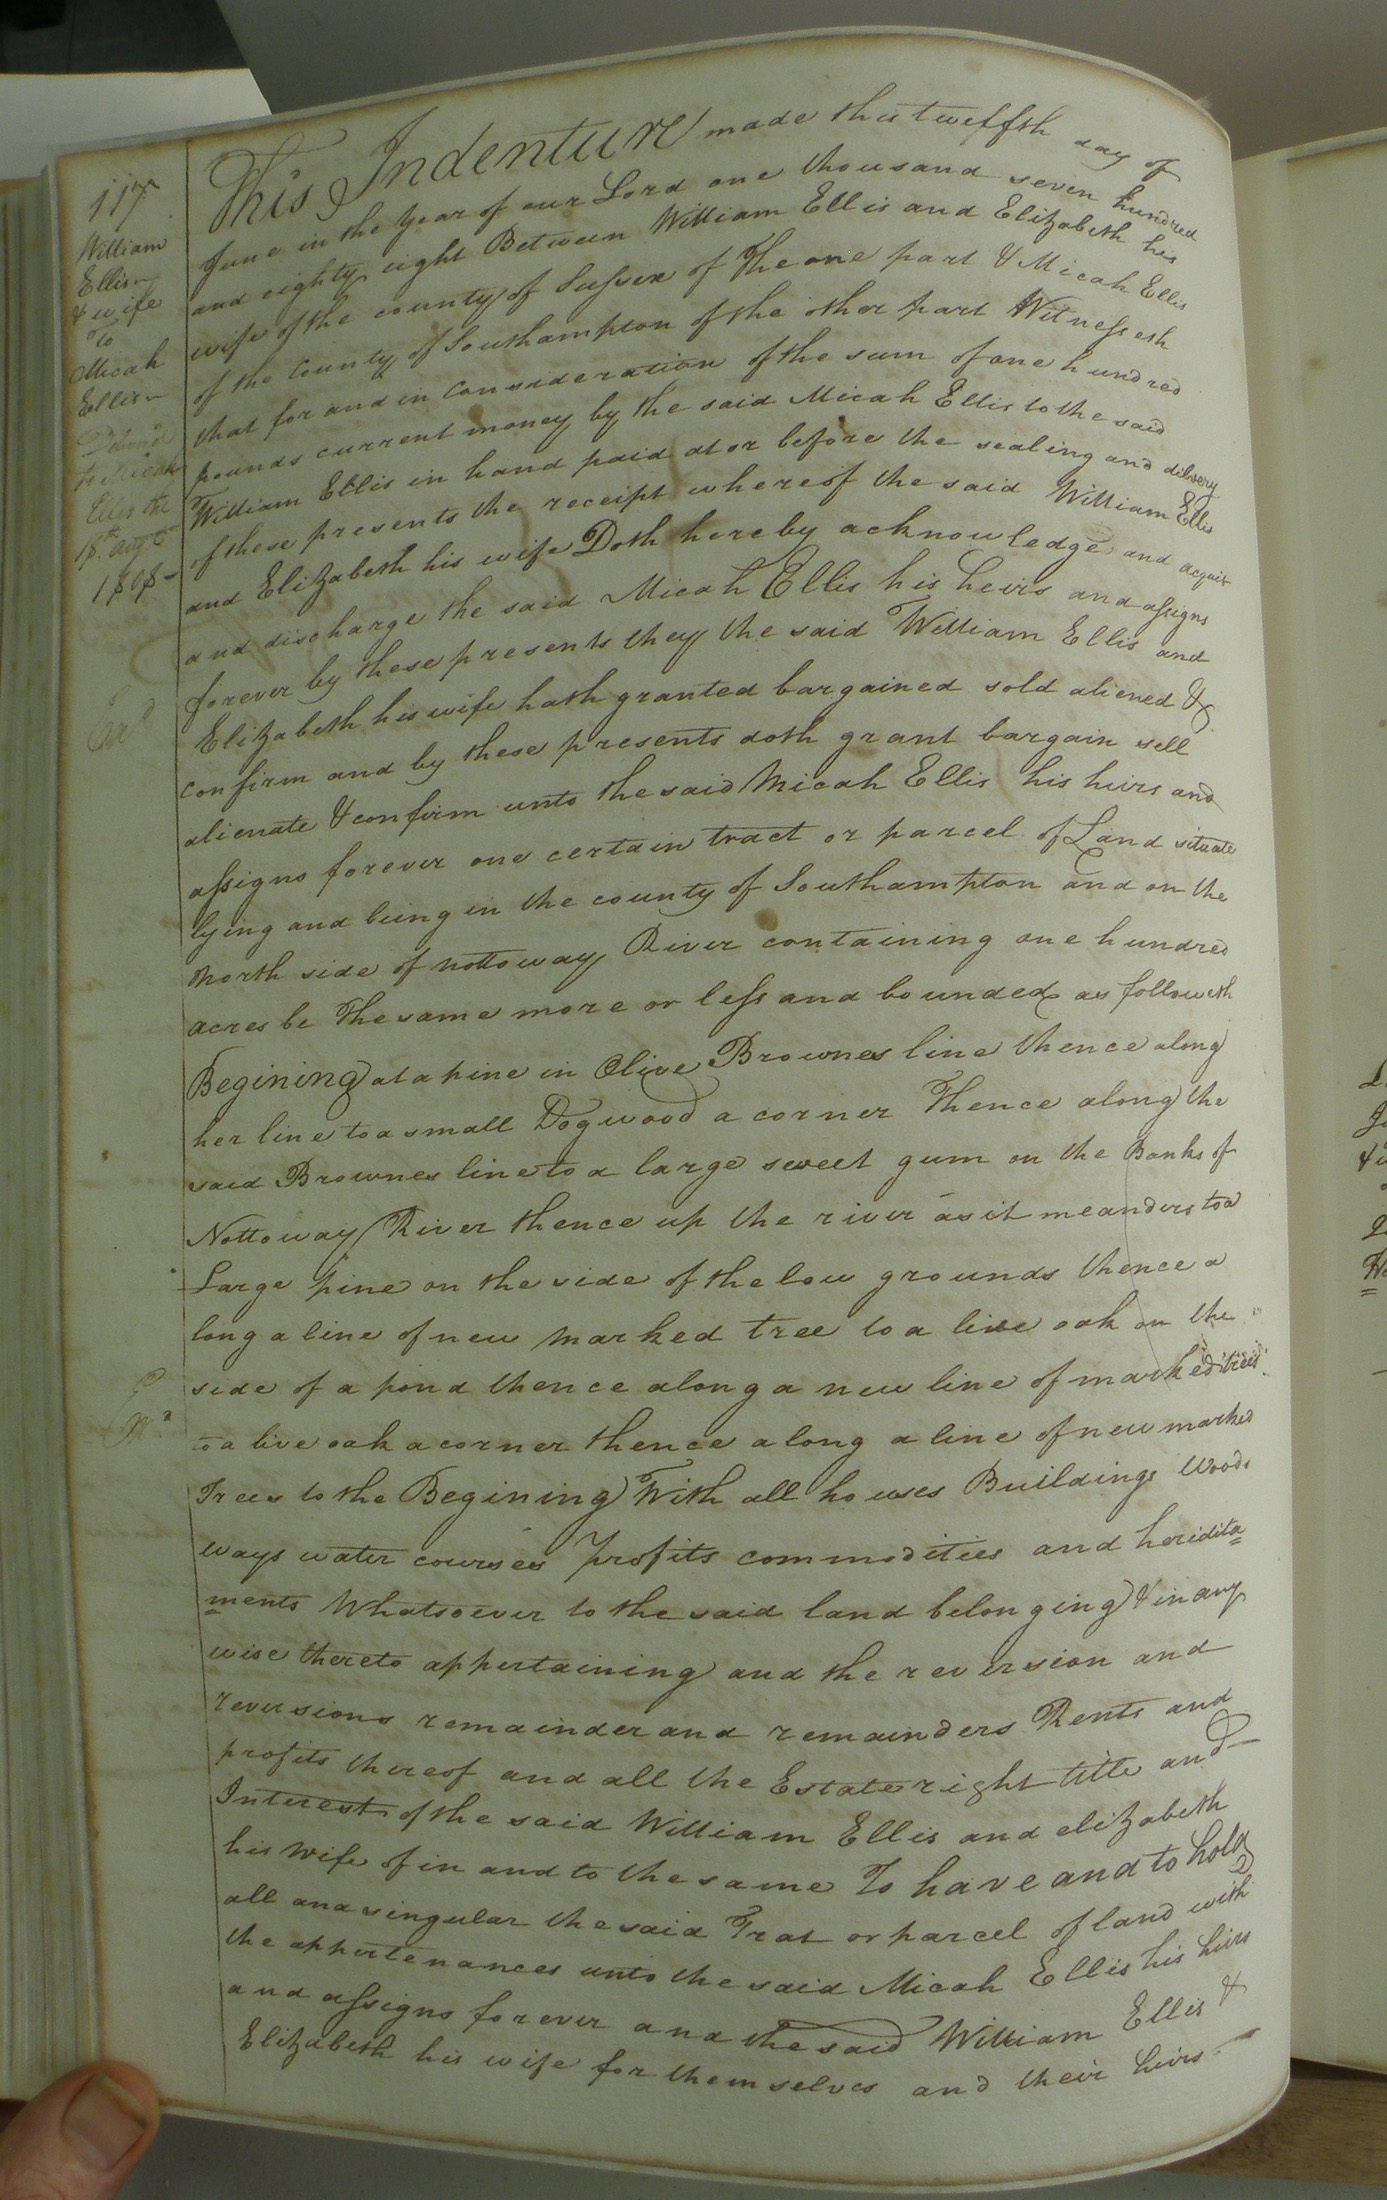 117
William
Ellis
& wife
To
Micah
Ellis
to Micah
Ellis the
18th Augt
1808
This Indenture made this twelfth day of
June in the Year of our Lord one thousand seven hundred
and eighty eight Between William Ellis and Elizabeth his
wife of the county of Sussex of The one part & Micah Ellis
of the County of Southampton of the other part Witnesseth
that for and in consideration of the sum of one hundred
pounds current money by the said Micah Ellis to the said
William Ellis in hand paid at or before the sealing and delivery
of these presents the receipt whereof the said William Ellis
and Elizabeth his wife Doth hereby acknowledge and acquit
and discharge the said Micah Ellis his heirs and assigns
forever by these presents they the said William Ellis and
Elizabeth his wife hath granted bargained sold aliened &
confirm and by these presents doth grant bargain sell
alienate & confirm unto the said Micah Ellis his heirs and
assigns forever one certain tract or parcel of Land situate
lying and being in the county of Southampton and on the
north side of nottoway River containing one hundred
acres be the same more or less and bounded as followeth
Begining at a pine in Olive Brownes line thence along
her line to a small Dogwood a corner Thence along the
said Brownes line to a large sweet gum on the Banks of
Nottoway River thence up the river as it meanders to a
Large pine on the side of the low grounds thence a
long a line of new marked tree to a live oak on the
side of a pond thence along a new line of marked trees
to a live oak a corner thence along a line of new marked
Trees to the Begining With all houses Buildings Woods
ways water courses profits commodities and heridita=
=ments Whatsoever to the said land belonging & in any
wise thereto appertaining and the reversion and
reversions remainder and remainders Rents and
profits thereof and all the Estate right title and
Interest of the said William Ellis and elizabeth
his Wife of in and to the same To have and to hold
all and singular the said Trat or parcel of land with
the appertenances unto the said Micah Ellis his heirs
and assigns forever and the said William Ellis &
Elizabeth his wife for themselves and their heirs